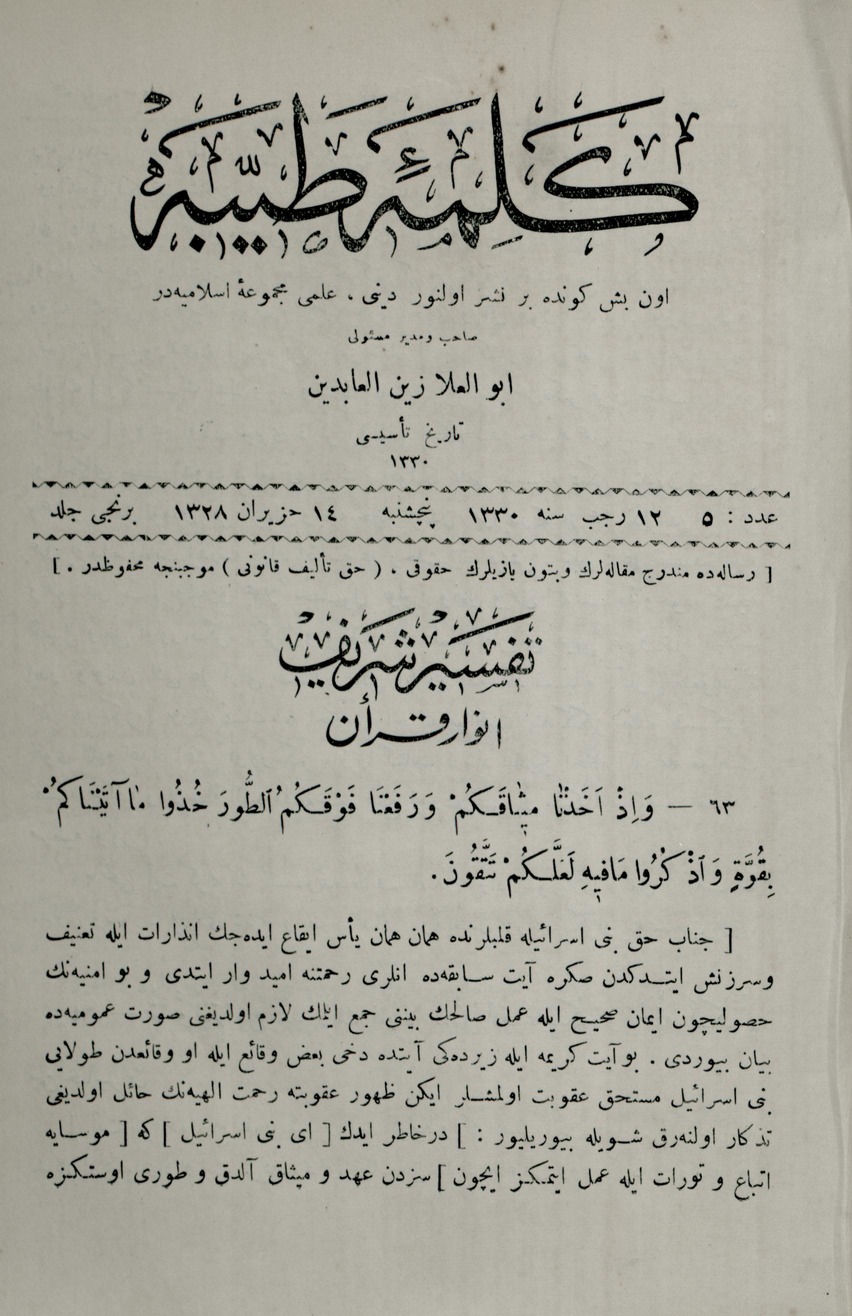 كلمۀ طيبه
اون بش كونده بر نشر اولنور دينى ، علمى مجموعۀ اسلاميه‌در
صاحب ومدير مسئولى
ابو العلا زين العابدين
تاريخ تأسيسى
١٣٣٠
عدد : ٥ ١٢ رجب سنه ١٣٣٠ پنچشنبه ١٤ حزيران ١٣٢٨ برنجى جلد
[ رساله‌ده مندرج مقاله‌لرك وبتون يازيلرك حقوقى . ( حق تأليف قانونى ) موجبنجه محفوظدر . ]
تفسير شريف
انوار قرأن
٦٣ — وَاِذْ اَخَذْنَا مِيثَاقَكُمْ وَرَفَعْنَا فَوْقَكُمُ الطُّورَ خُذُوا مَا آتَيْنَاكُمْ
بِقُوَّةٍ وَاذْكُرُوا مَافِيهِ لَعَلَّكُمْ تَتَّقُونَ .
[ جناب حق بنى اسرائيله قلبلرنده همان همان يأس ايقاع ايده‌جك انذارات ايله تعنيف
وسرزنش ايتدكدن صكره آيت سابقه‌ده انلرى رحمتنه اميد وار ايتدى و بو امنيه‌نك
حصوليچون ايمان صحيح ايله عمل صالحك بيننى جمع ايلمك لازم اولديغنى صورت عموميه‌ده
بيان بيوردى . بو آيت كريمه ايله زيرده‌كى آيتده دخى بعض وقائع ايله او وقائعدن طولايى
بنى اسرائيل مستحق عقوبت اولمشلر ايكن ظهور عقوبته رحمت الهيه‌نك حائل اولديغى
تذكار اولنه‌رق شويله بيوريليور : ] درخاطر ايدك [ اى بنى اسرائيل ] كه [ موسايه
اتباع و تورات ايله عمل ايتمكز ايچون ] سزدن عهد و ميثاق آلدق و طورى اوستكزه